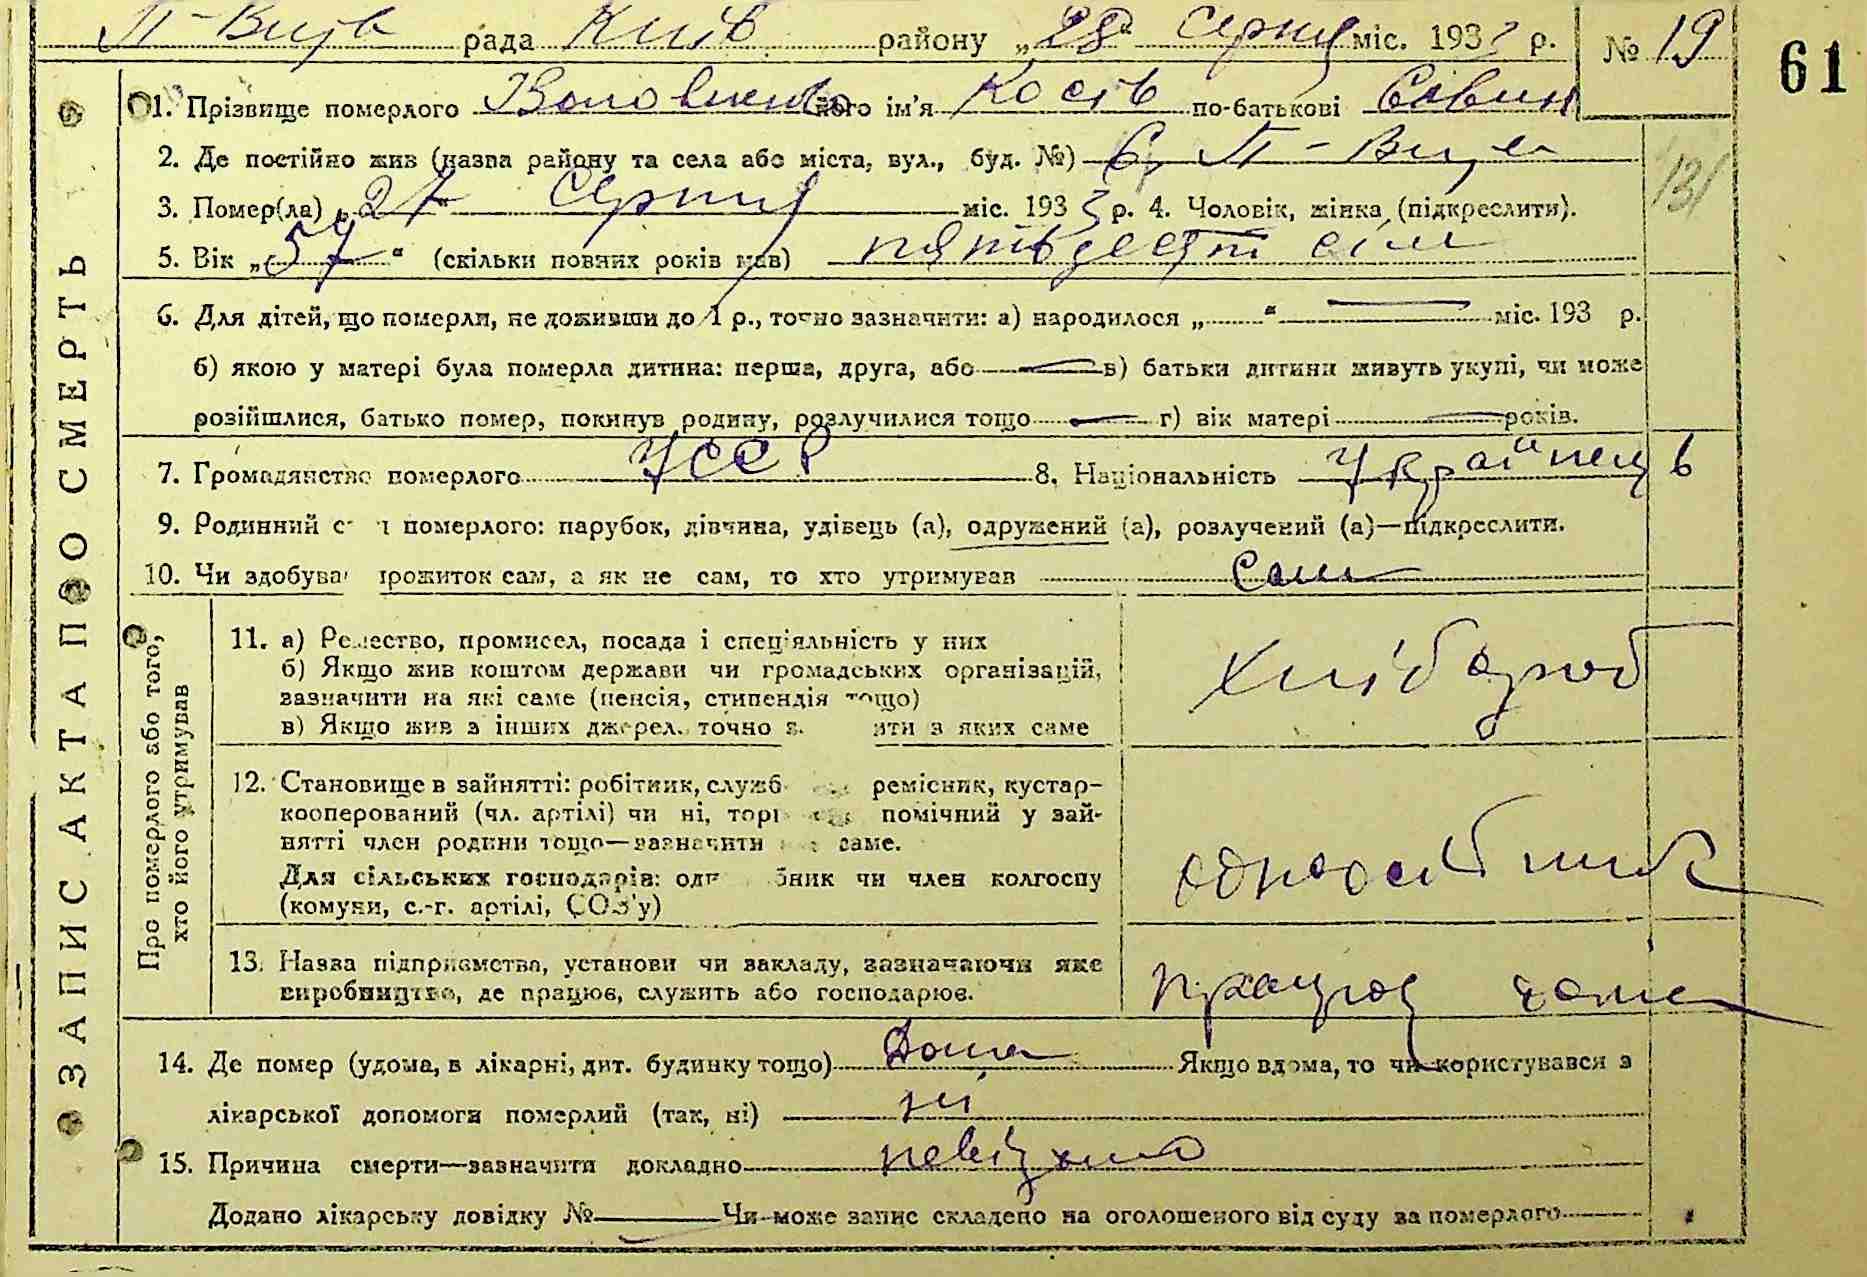 П-Вища рада Київ району „28“ Серпня міс. 1933 р. № 19
61
ЗАПИС АКТА ПРО СМЕРТЬ
1. Прізвище померлого його ім'я Кость по-батькові Савин
2. Де постійно жив (назва району та села або міста, вул., буд. №) С. П-Вища
131
3. Помер(ла) „27 Серпня міс. 1933 р. 4. Чоловік, жінка (підкреслити).
5. Вік „57“ (скільки повних років мав) пятьдесят сім
6. Для дітей, що померли, не доживши до 1 р., точно зазначити: а) народилося „ “ міс. 193 р.
б) якою у матері була померла дитина: перша, друга, або в) батьки дитини живуть укупі, чи може
розійшлися, батько помер, покинув родину, розлучилися тощо г) вік матері років.
7. Громадянство померлого УССР 8. Національність Українець
9. Родинний с н померлого: парубок, дівчина, удівець (а), одружений (а), розлучений (а)—підкреслити.
10. Чи здобував прожиток сам, а як не сам, то хто утримував Сам
Про померлого або того,
хто його утримував
11. а) Ремество, промисел, посада і спеціяльність у них
б) Якщо жив коштом держави чи громадських організацій,
зазначити на які саме (пенсія, стипендія тощо)
в) Якщо жив з інших джерел, точно з ити з яких саме
Хлібороб
12. Становище в зайнятті: робітник, служб ремісник, кустар-
кооперований (чл. артілі) чи ні, торг помічний у зай-
нятті член родини тощо—зазначити саме.
Для сільських господарів: од бник чи член колгоспу
(комуни, с.-г. артілі, СОЗ'у)
одноосібник
13. Назва підприємства, установи чи закладу, зазначаючи яке
виробництво, де працює, служить або господарює.
працював дома
14. Де помер (удома, в лікарні, дит. будинку тощо) Дома Якщо вдома, то чи користувався з
лікарської допомоги померлий (так, ні) ні
15. Причина смерти—зазначити докладно невідомо
Додано лікарську довідку № Чи може запис складено на оголошеного від суду за померлого